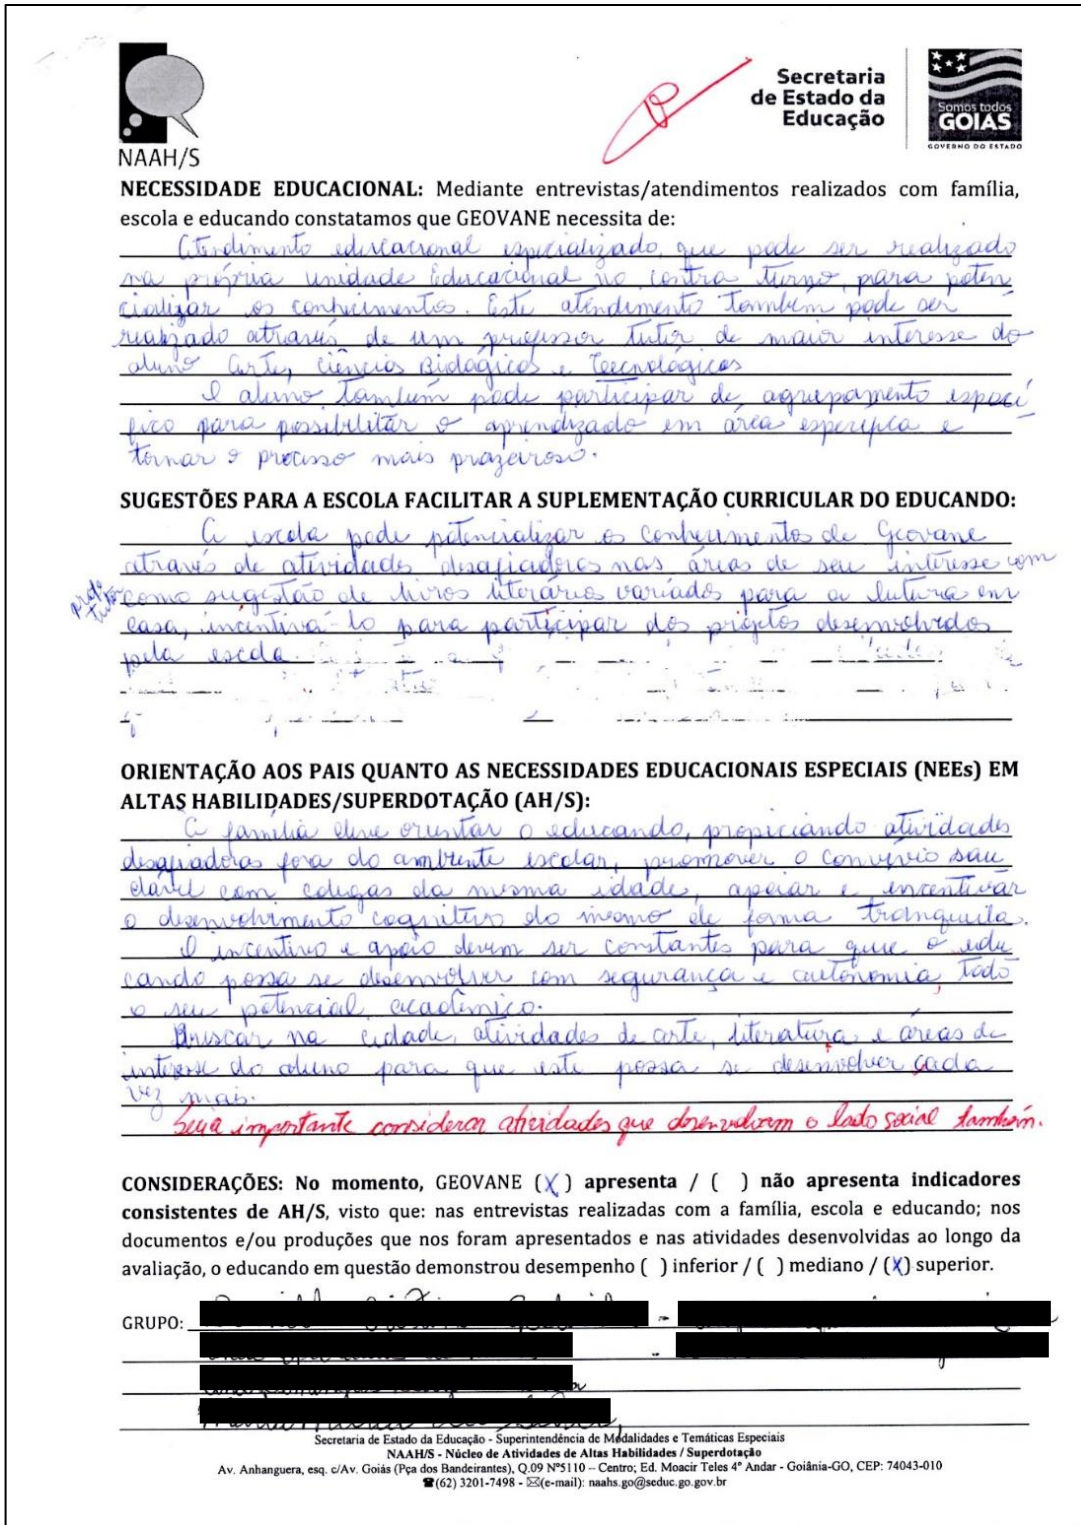 NAAH/S
Secretaria
de Estado da
Educação
Somos todos
GOIÁS
GOVERNO DO ESTADO
NECESSIDADE EDUCACIONAL: Mediante entrevistas/atendimentos realizados com família,
escola e educando constatamos que GEOVANE necessita de:
Atendimento educacional especializado, que pode ser realizado
na própria unidade Educacional no contra turno, para poten
cializar os conhecimentos. Este atendimento também pode ser
realizado através de um professor tutor de maior interesse do
aluno Arte, Ciências Biológicas e Tecnológicas
O aluno também pode participar de agrupamento especí
fico para possibilitar o aprendizado em área específica e
tornar o processo mais prazeiroso.
SUGESTÕES PARA A ESCOLA FACILITAR A SUPLEMENTAÇÃO CURRICULAR DO EDUCANDO:
A escola pode potencializar os conhecimentos de Geovane
através de atividades desafiadoras nas áreas de seu interesse com
prof. tutor
como sugestão de livros literários variados para a leitura em
casa, incentivá-lo para participar dos projetos desenvolvidos
pela escola.
ORIENTAÇÃO AOS PAIS QUANTO AS NECESSIDADES EDUCACIONAIS ESPECIAIS (NEEs) EM
ALTAS HABILIDADES/SUPERDOTAÇÃO (AH/S):
A família deve orientar o educando, propiciando atividades
desafiadoras fora do ambiente escolar, promover o convívio sau
dável com colegas da mesma idade, apoiar e incentivar
o desenvolvimento cognitivo do mesmo de forma tranquila.
O incentivo e apoio devem ser constantes para que o edu
cando possa se desenvolver com segurança e autonomia, todo
o seu potencial acadêmico.
Buscar na cidade, atividades de arte, literatura e áreas de
interesse do aluno para que este possa se desenvolver cada
vez mais.
Seria importante considerar atividades que desenvolvam o lado social também.
CONSIDERAÇÕES: No momento, GEOVANE (X) apresenta / ( ) não apresenta indicadores
consistentes de AH/S, visto que: nas entrevistas realizadas com a família, escola e educando; nos
documentos e/ou produções que nos foram apresentados e nas atividades desenvolvidas ao longo da
avaliação, o educando em questão demonstrou desempenho ( ) inferior / ( ) mediano / (X) superior.
GRUPO:
Secretaria de Estado da Educação - Superintendência de Modalidades e Temáticas Especiais
NAAH/S - Núcleo de Atividades de Altas Habilidades / Superdotação
Av. Anhanguera, esq. c/Av. Goiás (Pça dos Bandeirantes), Q.09 Nº5110 – Centro; Ed. Moacir Teles 4° Andar - Goiânia-GO, CEP: 74043-010
☎(62) 3201-7498 - ✉(e-mail): naahs.go@seduc.go.gov.br